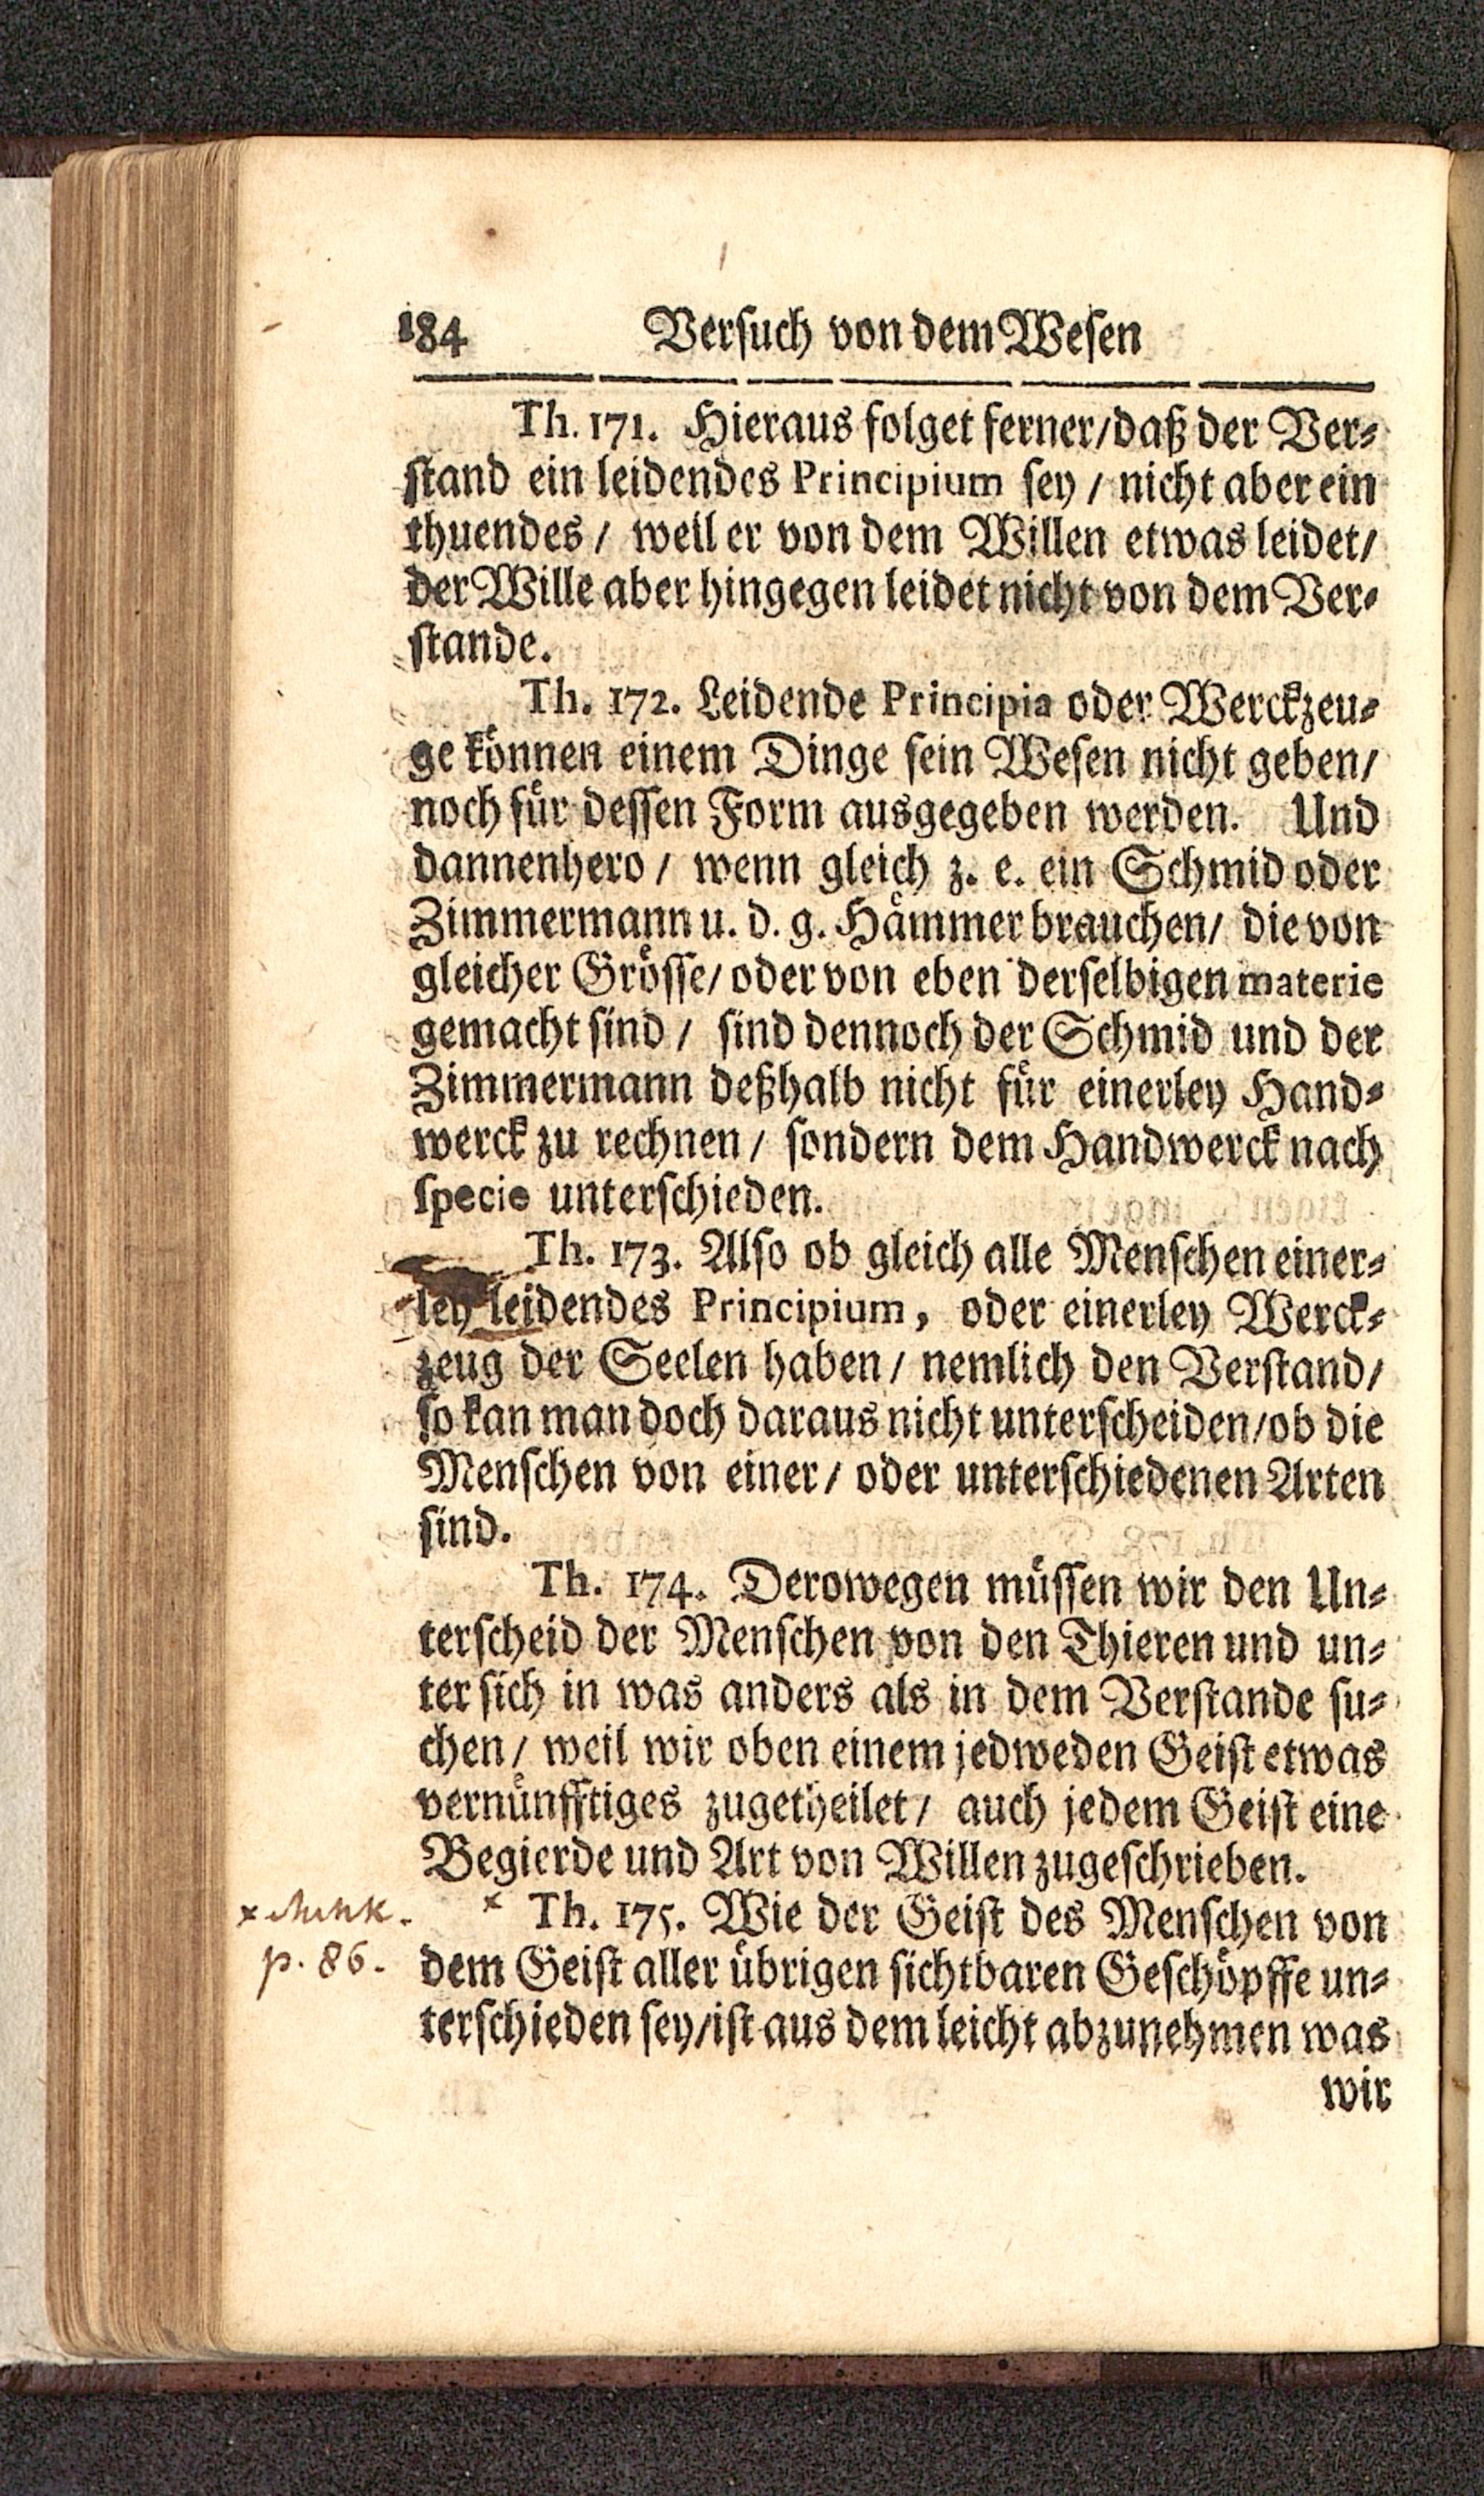 184 Versuch von dem Wesen
Th. 171. Hieraus folget ferner/daß der Ver-
stand ein leidendes Principium sey / nicht aber ein
thuendes / weil er von dem Willen etwas leidet/
der Wille aber hingegen leidet nicht von dem Ver-
stande.
Th. 172. Leidende Principia oder Werckzeu-
ge können einem Dinge sein Wesen nicht geben/
noch für dessen Form ausgegeben werden. Und
dannenhero / wenn gleich z. e. ein Schmid oder
Zimmermann u. d. g. Hämmer brauchen/ die von
gleicher Grösse/ oder von eben derselbigen materie
gemacht sind / sind dennoch der Schmid und der
Zimmermann deßhalb nicht für einerley Hand-
werck zu rechnen / sondern dem Handwerck nach
specie unterschieden.
Th. 173. Also ob gleich alle Menschen einer-
ley leidendes Principium, oder einerley Werck-
zeug der Seelen haben / nemlich den Verstand/
so kan man doch daraus nicht unterscheiden/ob die
Menschen von einer / oder unterschiedenen Arten
sind.
Th. 174. Derowegen müssen wir den Un-
terscheid der Menschen von den Thieren und un-
ter sich in was anders als in dem Verstande su-
chen / weil wir oben einem jedweden Geist etwas
vernünfftiges zugetheilet / auch jedem Geist eine
Begierde und Art von Willen zugeschrieben.
× Th. 175. Wie der Geist des Menschen von
dem Geist aller übrigen sichtbaren Geschöpffe un-
terschieden sey/ist aus dem leicht abzunehmen was
wir
×
p. 86.